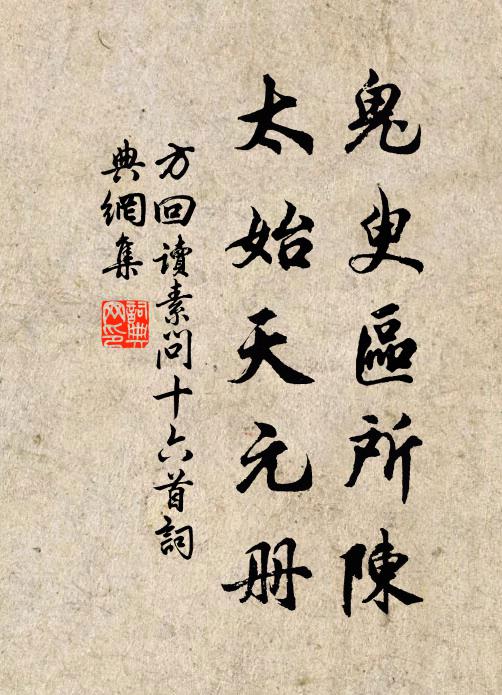 鬼臾區所陳
太始天元册
方回讀素問十六首詞
典網集
詞典
网印